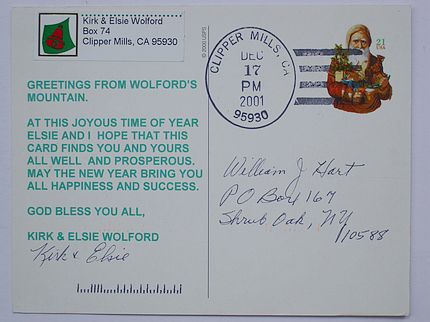 Kirk & Elsie Wolford
Box 74
Clipper Mills, CA 95930
© 2000 USPS
CLIPPER MILLS, CA
DEC
17
PM
2001
95930
21
USA
GREETINGS FROM WOLFORD'S
MOUNTAIN.
AT THIS JOYOUS TIME OF YEAR
ELSIE AND I HOPE THAT THIS
CARD FINDS YOU AND YOURS
ALL WELL AND PROSPEROUS.
MAY THE NEW YEAR BRING YOU
ALL HAPPINESS AND SUCCESS.
GOD BLESS YOU ALL,
KIRK & ELSIE WOLFORD
Kirk & Elsie
William J Hart
PO Box 167
Shrub Oak, NY
10588